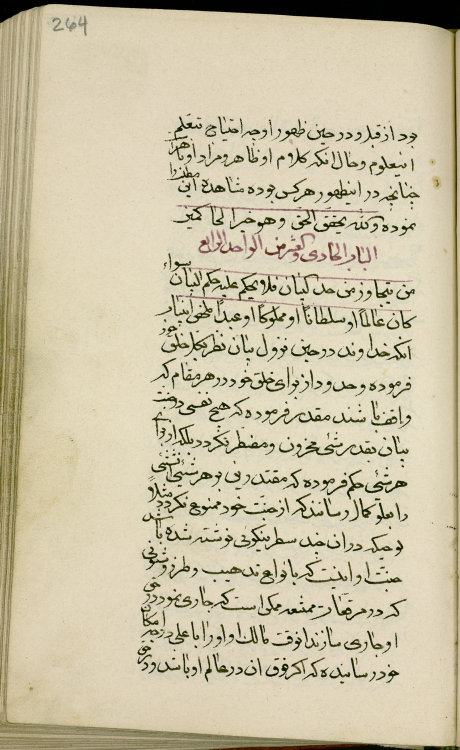 264
بود از قبل و در حین ظهور او چه احتیاج بتعلم
این علوم و حال انکه کلام او ظاهر و مراد او باهر
چنانچه در این ظهور هر کس بوده مشاهده این مطلب را
نموده و کذلک یحقق الله الحق و هو خیر الحاکمین
الباب الحادی و العشر من الواحد الرابع
من یتجاوز عن حد البیان فلا یحکم علیه حکم الایمان سواء
کان عالما او سلطانا او مملوکا او عبدا ملخص این باب
انکه خداوند در حین نزول بیان نظر بکل خلق خود
فرموده و حدود از برای خلق خود در هر مقام که
واقف باشند مقدر فرموده که هیچ نفسی در جنت
بیان بقدر شئ محزون و مضطر نگردد بلکه از برای
هر شئ حکم فرموده که مقتدرین بر هر شئ ان شئ
را بعلو کمال رسانند که از جنت خود ممنوع نگردد مثلا
لوحیکه در ان چند سطر نیکوئی نوشته شده باشد
جنت او اینست که بانواع تذهیب و طرز و شئونی
که در مرقعات ممتنعه ممکن است که جاری نمود در حق
او جاری سازند انوقت مالک او او را باعلی درجه امکان
خود رسانیده که اگر فوق ان در عالم او باشد و در حق